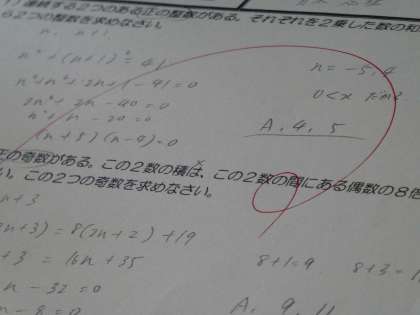 連続する2つのある正の整数がある。それぞれを2乗した数の和
2つの整数を求めなさい。
n, n+1
n²+(n+1)²=41
n²+n²+2n+1-41=0
2n²+2n-40=0
n²+n-20=0
(n+5)(n-9)=0
n=-5,4
0<x だから
A. 4, 5
正の奇数がある。この2数の積は、この2数の間にある偶数の8倍
い。この2つの奇数を求めなさい。
n+3
2n+3)=8(2n+2)+19
+3=16n+35
n-32=0
n-8=0
8+1=9
8+3=1
A. 9, 11